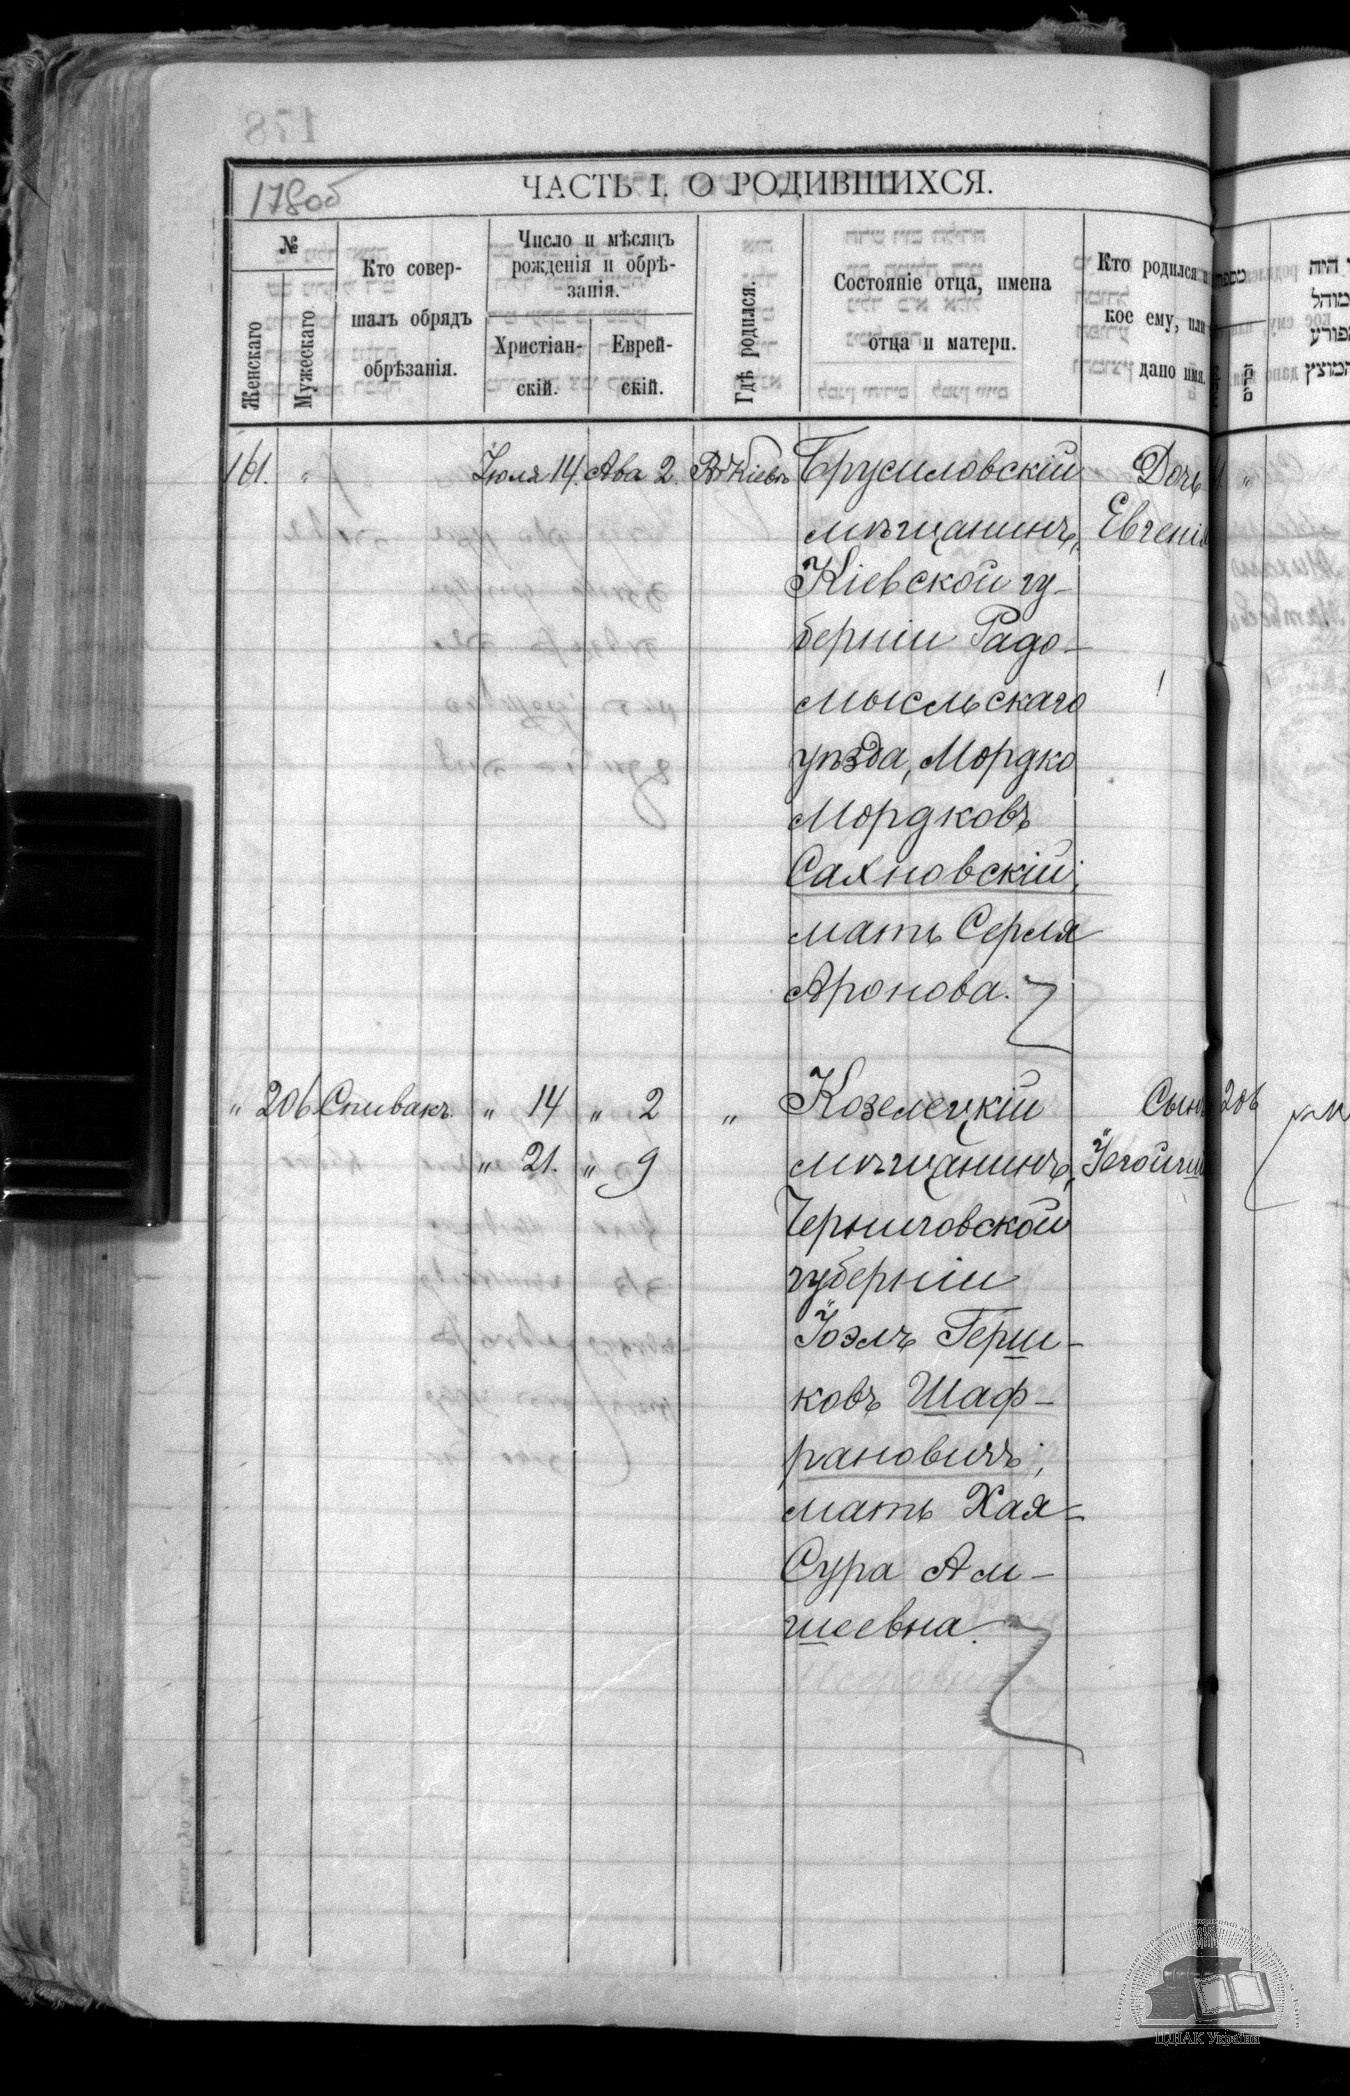 178об
ЧАСТЬ I. О РОДИВШИХСЯ.
№
Женскаго
Мужескаго
Кто совер-
шалъ обрядъ
обрѣзанія.
Число и мѣсяцъ
рожденія и обрѣ-
занія.
Христіан-
скій.
Еврей-
скій.
Гдѣ родился.
Состояніе отца, имена
отца и матери.
Кто родился и
кое ему, или
дано имя.
161. " Іюля 14. Ава 2. Въ Кіевѣ Брусиловскій Дочь
мѣщанинъ, Евгенія
Кіевской гу-
берніи Радо-
мысльскаго
уѣзда, Мордко
Мордковъ
Сахновскій;
мать Серля
Аронова.
" 206 Спивакъ. " 14 " 2 " Козелецкій Сынъ 206
" 21. " 9 мѣщанинъ,
Черниговской
губерніи
Іоэлъ Герш-
ковъ Шаф-
рановичъ;
мать Хая-
Сура Ам-
шеевна.
ЦДІАК України